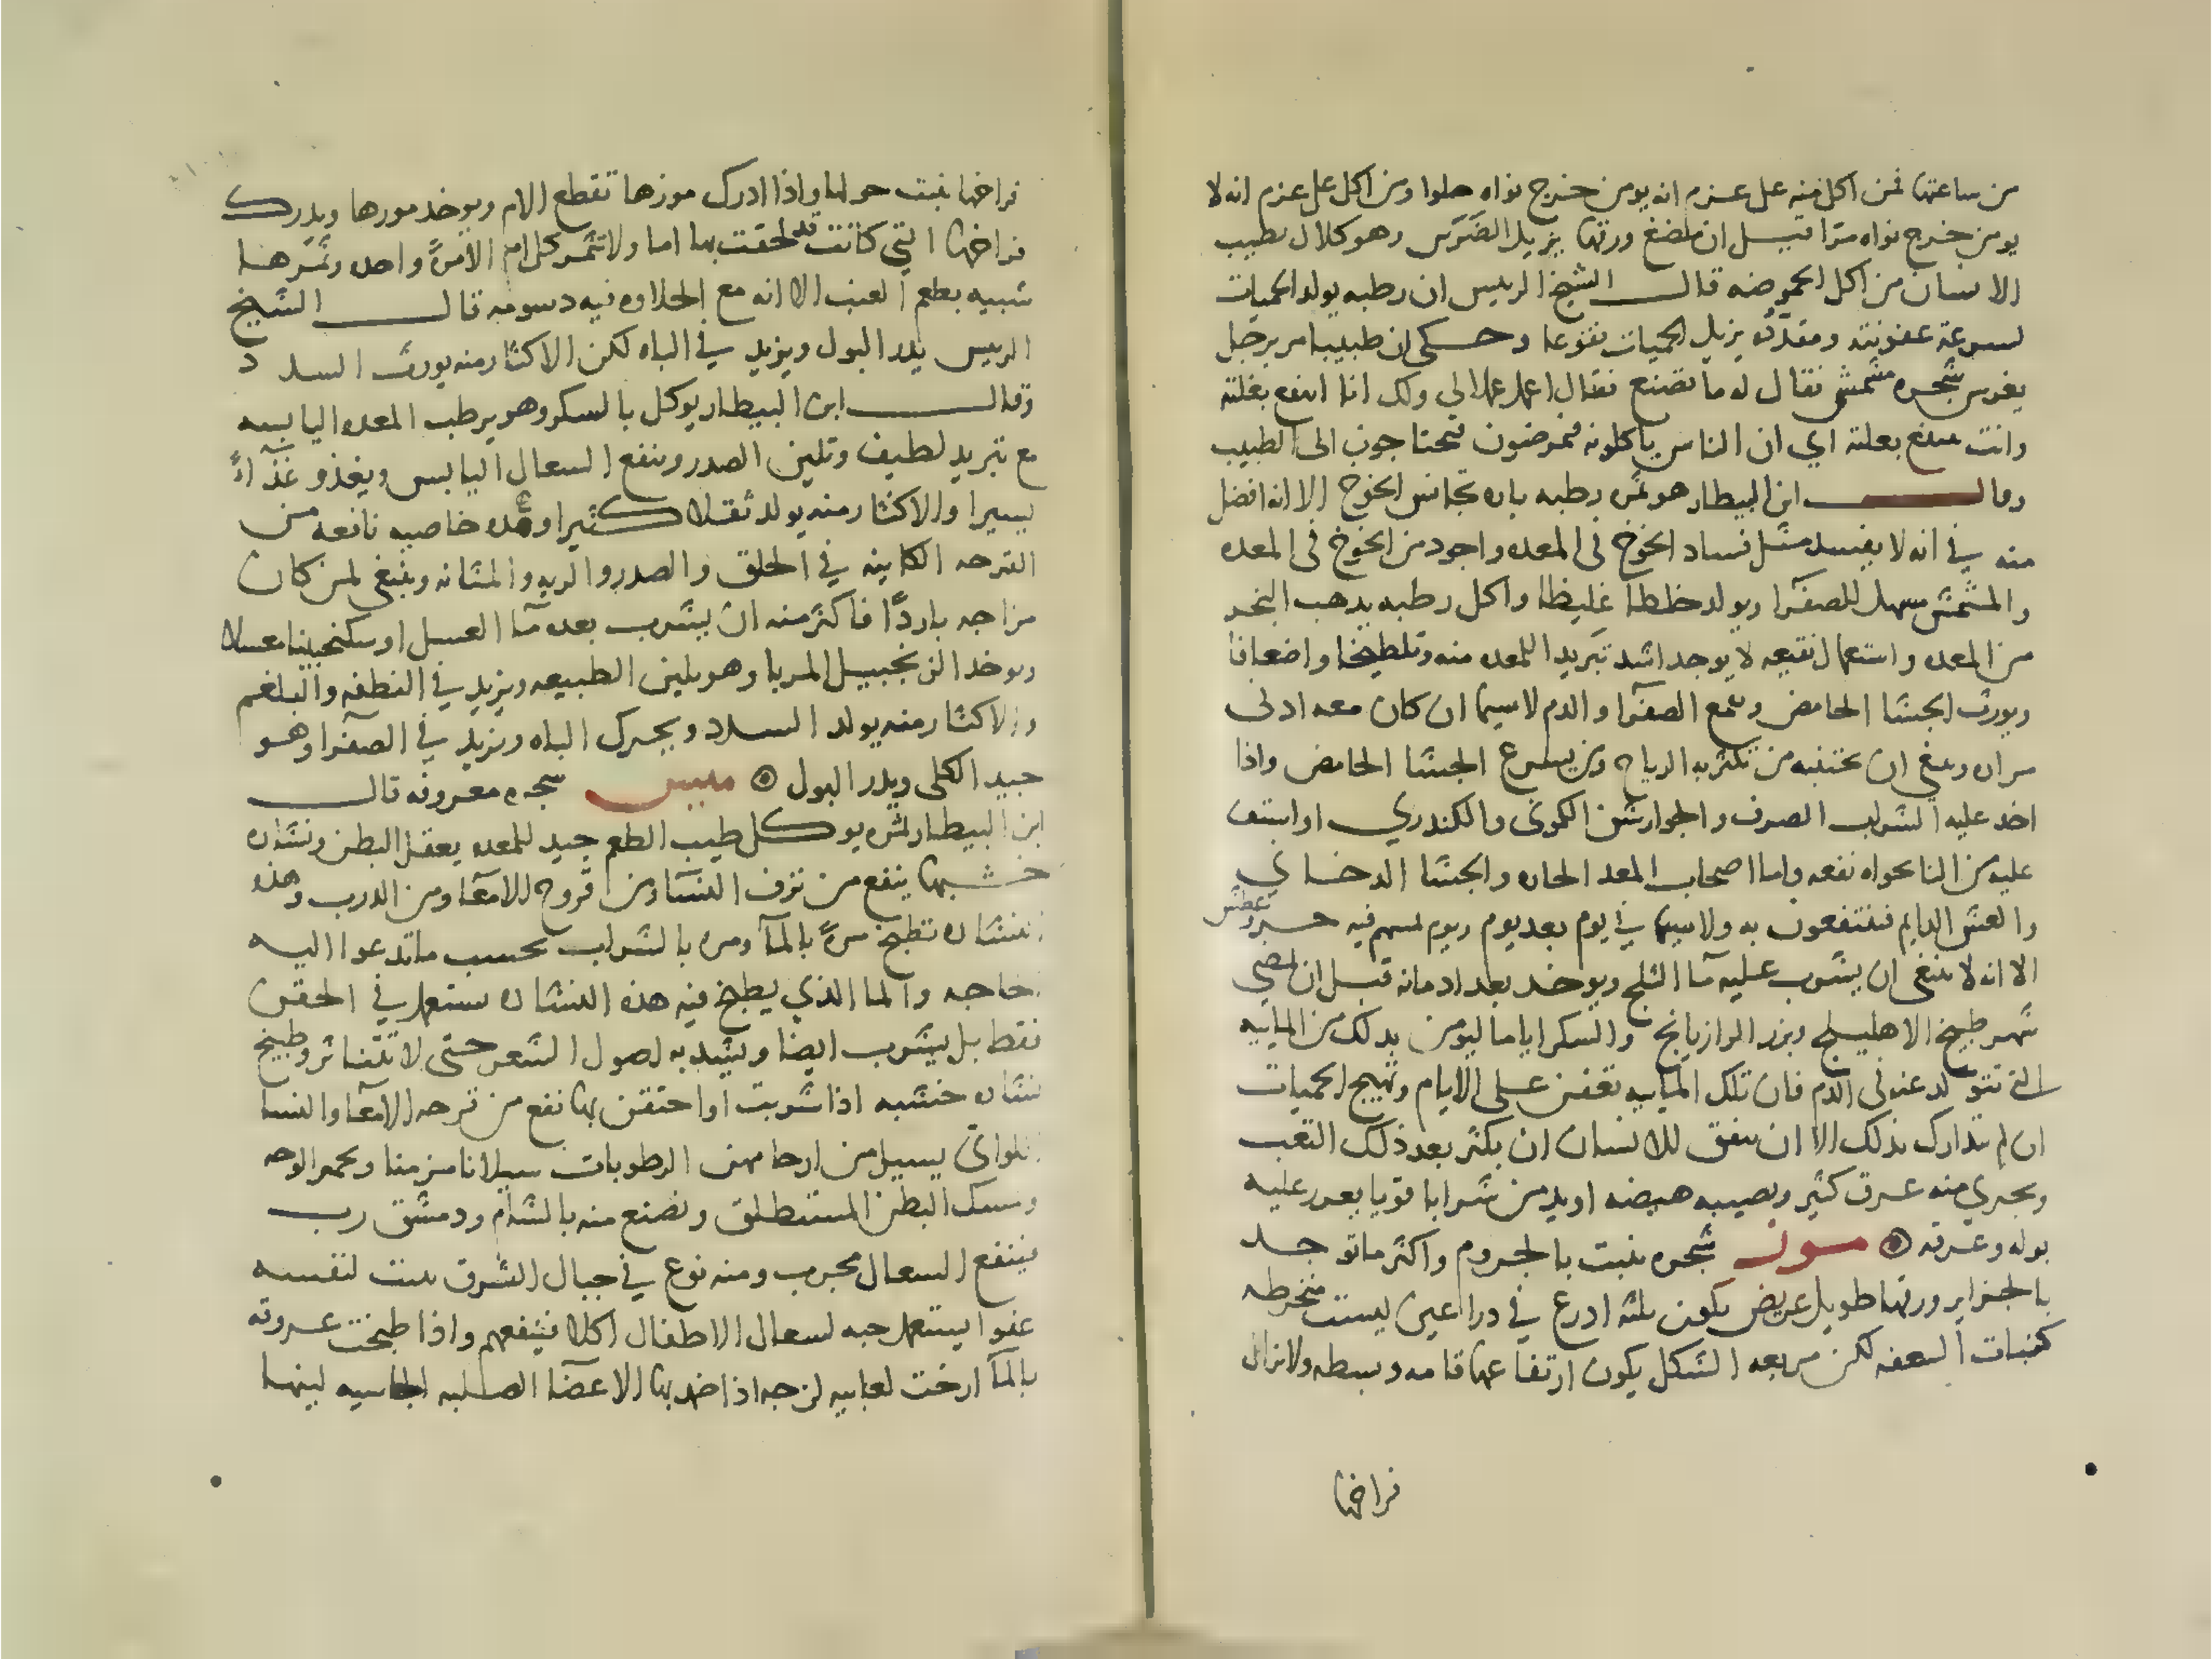 من ساعتها فمن اكل منه على عزم انه يومن خرج نواه حلوا ومن اكل على عزم انه لا
يومن خرج نواه مرا قيل ان مضغ ورقها يزيل الضرس وهو كلال يصيب
الانسان من اكل الحموضه قال الشيخ الرييس ان رطبه يولد الحميات
لسرعة عفونته ومقدده يزيل الحميات نقوعا وحكى ان طبيبا مر برجل
يغرس شجره مشمش فقال له ما تصنع فقال اعمل عملا لى ولك انا انتفع بغلته
وانت تنتفع بعلته اي ان الناس ياكلونه فيمرضون فيحتاجون الى الطبيب
وقال ابن البيطار هو ثمر رطبه بارد يجانس الخوخ الا انه افضل
منه في انه لا يفسد مثل فساد الخوخ فى المعده واجود من الخوخ فى المعده
والمشمش مسهل للصفرا ويولد خلطا غليظا واكل رطبه يذهب البخر
من المعده واستعمال نقيعه لا يوجد اشد تبريدا للمعده منه وتلطيخا واضعافا
ويورث الجشا الحامض ويقمع الصفرا والدم لاسيما ان كان معه ادنى
مراره وينبغى ان يجتنبه من تكثر به الرياح ومن يسرع الجشا الحامض واذا
اخد عليه الشراب الصرف والجوارشن الكمونى والكندري او استف
عليه من النانخواه نفعه واما اصحاب المعد الحاره والجشا الدخاني
والعطش الدايم فينتفعون به ولا سيما في يوم بعد يوم ويوم لسهم فيه حر وعطش
الا انه لا ينبغى ان يشرب عليه ما الثلج ويوخد بعد ادمانه قبل ان يمضي
شهر طبيخ الاهليلج وبزر الرازيانج والسكر اياما ليومن بدلك من المايية
التى تتولد عنه فى الدم فان تلك المايية تعفن على الايام وتهيج الحميات
ان لم تدارك بذلك الا ان يتفق للانسان ان يكثر بعد ذلك التعب
ويجري منه عرق كثير وتصيبه هيضه او يدمن شرابا قويا يغزر عليه
بوله وعرقه موز شجره ينبت بالجروم واكثر ما توجد
بالجزاير ورقها طويل عريض يكون ثلثة ادرع في دراعين ليست منخرطه
كنبات السعفه لكن مربعه الشكل يكون ارتفاعها قامه وبسطه ولا تزال
فراخها
فراخها ينبت حولها واذا ادرك موزها تقطع الام ويوخد موزها ويدرك
فراخها التي كانت قد لحقت بها اما ولا تثمر كل ام الا مرة واحده وثمرها
شبيه بطعم العنب الا انه مع الحلاوه فيه دسومه قال الشيخ
الرييس يدر البول ويزيد في الباه لكن الاكثار منه يورث السدد
وقال ابن البيطار يوكل بالسكر وهو يرطب المعده اليابسه
مع تبريد لطيف وتلين الصدر وينفع السعال اليابس ويغذو غذآءً
يسيرا والاكثار منه يولد ثقلا كثيرا وعنده خاصيه نافعه من
القرحه الكاينه في الحلق والصدر والريه والمثانه وينبغى لمن كان
مزاجه باردًا فاكثر منه ان يشرب بعده مآ العسل او سكنجبينا معسلا
ويوخد الزنجبيل المربا وهو يلين الطبيعه ويزيد في النطفه والبلغم
والاكثار منه يولد السدد ويحرك الباه ويزيد في الصفرا وهو
جيد الكلى ويدر البول ميس شجره معروفه قال
ابن البيطار ثمره يوكل طيب الطعم جيد للمعده يعقل البطن ونشاره
خشبها ينفع من نزف النسآ ومن قروح الامعا ومن الدرب وهذه
النشاره تطبخ مرة بالمآ ومره بالشراب بحسب ما تدعوا اليه
الحاجه والما الذي يطبخ فيه هذه النشاره يستعمل في الحقن
فقط بل يشرب ايضا ويشيد به اصول الشعر حتى لا تتناثر وطبيخ
نشاره خشبه اذا شربت او احتقن بها نفع من قرحه الامعا والنسا
اللواتى يسيل من ارحامهن الرطوبات سيلانا مزمنا ويحمر الوجه
ويمسك البطن المستطلق ويصنع منه بالشام ودمشق رب
فينفع السعال مجرب ومنه نوع في جبال الشرق ينبت لنفسه
عفوا يستعمل حبه لسعال الاطفال اكلا فينفعهم واذا طبخت عروقه
بالمآ ارخت لعابيه لزجه اذا ضمد بها الاعضآ الصلبه الجاسيه لينها